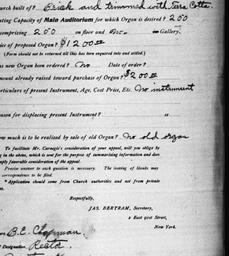 urch built of? Brick and trimmed with Terra Cotta.
ating Capacity of Main Auditorium for which Organ is desired? 250
comprising 250 on floor and no Gallery.
rice of proposed Organ? $1200.00
(Form should not be returned till this has been enquired into and settled.)
as new Organ been ordered? No Date of order?
mount already raised toward purchase of Organ? $200.00
articulars of present Instrument, Age, Cost Price, Etc. No instrument
ason for displacing present Instrument?
ow much is to be realized by sale of old Organ? No old organ
To facilitate Mr. Carnegie's consideration of your appeal, will you oblige by
ing in the above, which is sent for the purpose of summarizing information and does
imply favorable consideration of the appeal.
Precise answer to each question is necessary. The issuing of blanks may
correspondence to be filed.
Application should come from Church authorities and not from private
Respectfully,
JAS. BERTRAM, Secretary,
2 East 91st Street,
New York.
B.E. Chapman
Designation, Rector